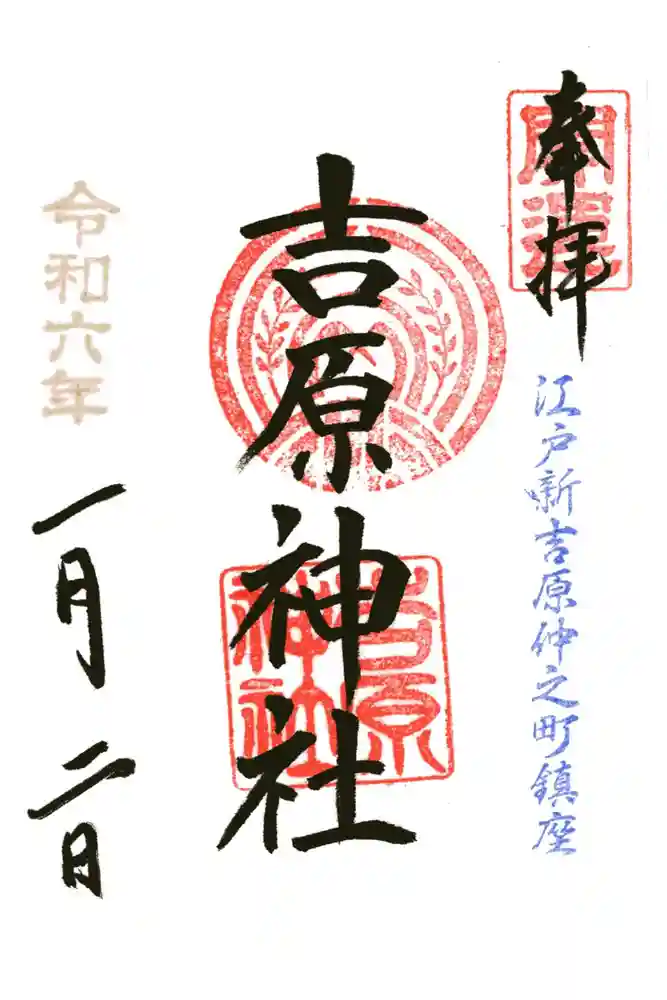 奉拝
開運
江戸新吉原仲之町鎮座
吉原神社
吉原神社
令和六年
一月二日